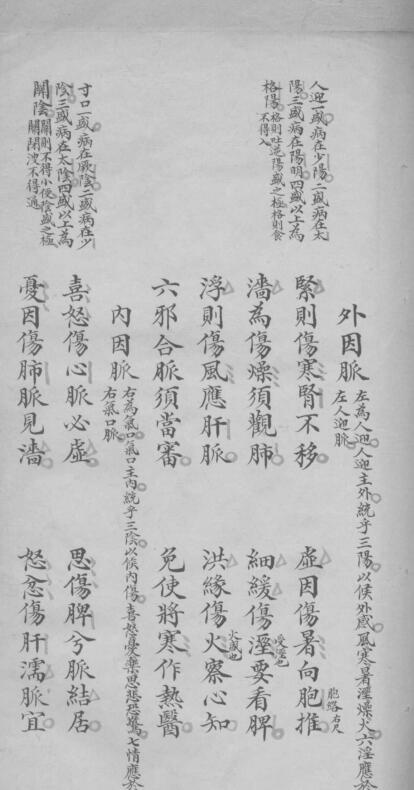 人迎一盛病在少陽二盛病在太
陽三盛病在陽明四盛以上為
格陽格則吐逆陽盛之極格則食
不得入
寸口一盛病在厥陰二盛病在少
陰三盛病在太陰四盛以上為
關陰關則不得小便陰盛之極
關閉溲不得通
外因脈
左為人迎人迎主外統乎三陽以候外感風寒暑溼燥火六淫應於
左人迎脈
緊則傷寒腎不移 虛因傷暑向胞推
胞絡右尺
濇為傷燥須觀肺 細緩傷溼要看脾
受溼也
浮則傷風應肝脈 洪緣傷火察心知
火盛也
六邪合脈須當審 免使將寒作熱醫
內因脈
右為氣口氣口主內統乎三陰以候內傷喜怒憂樂思悲恐驚七情應於
右氣口脈
喜怒傷心脈必虛 思傷脾兮脈結居
憂因傷肺脈見濇 怒忿傷肝濡脈宜